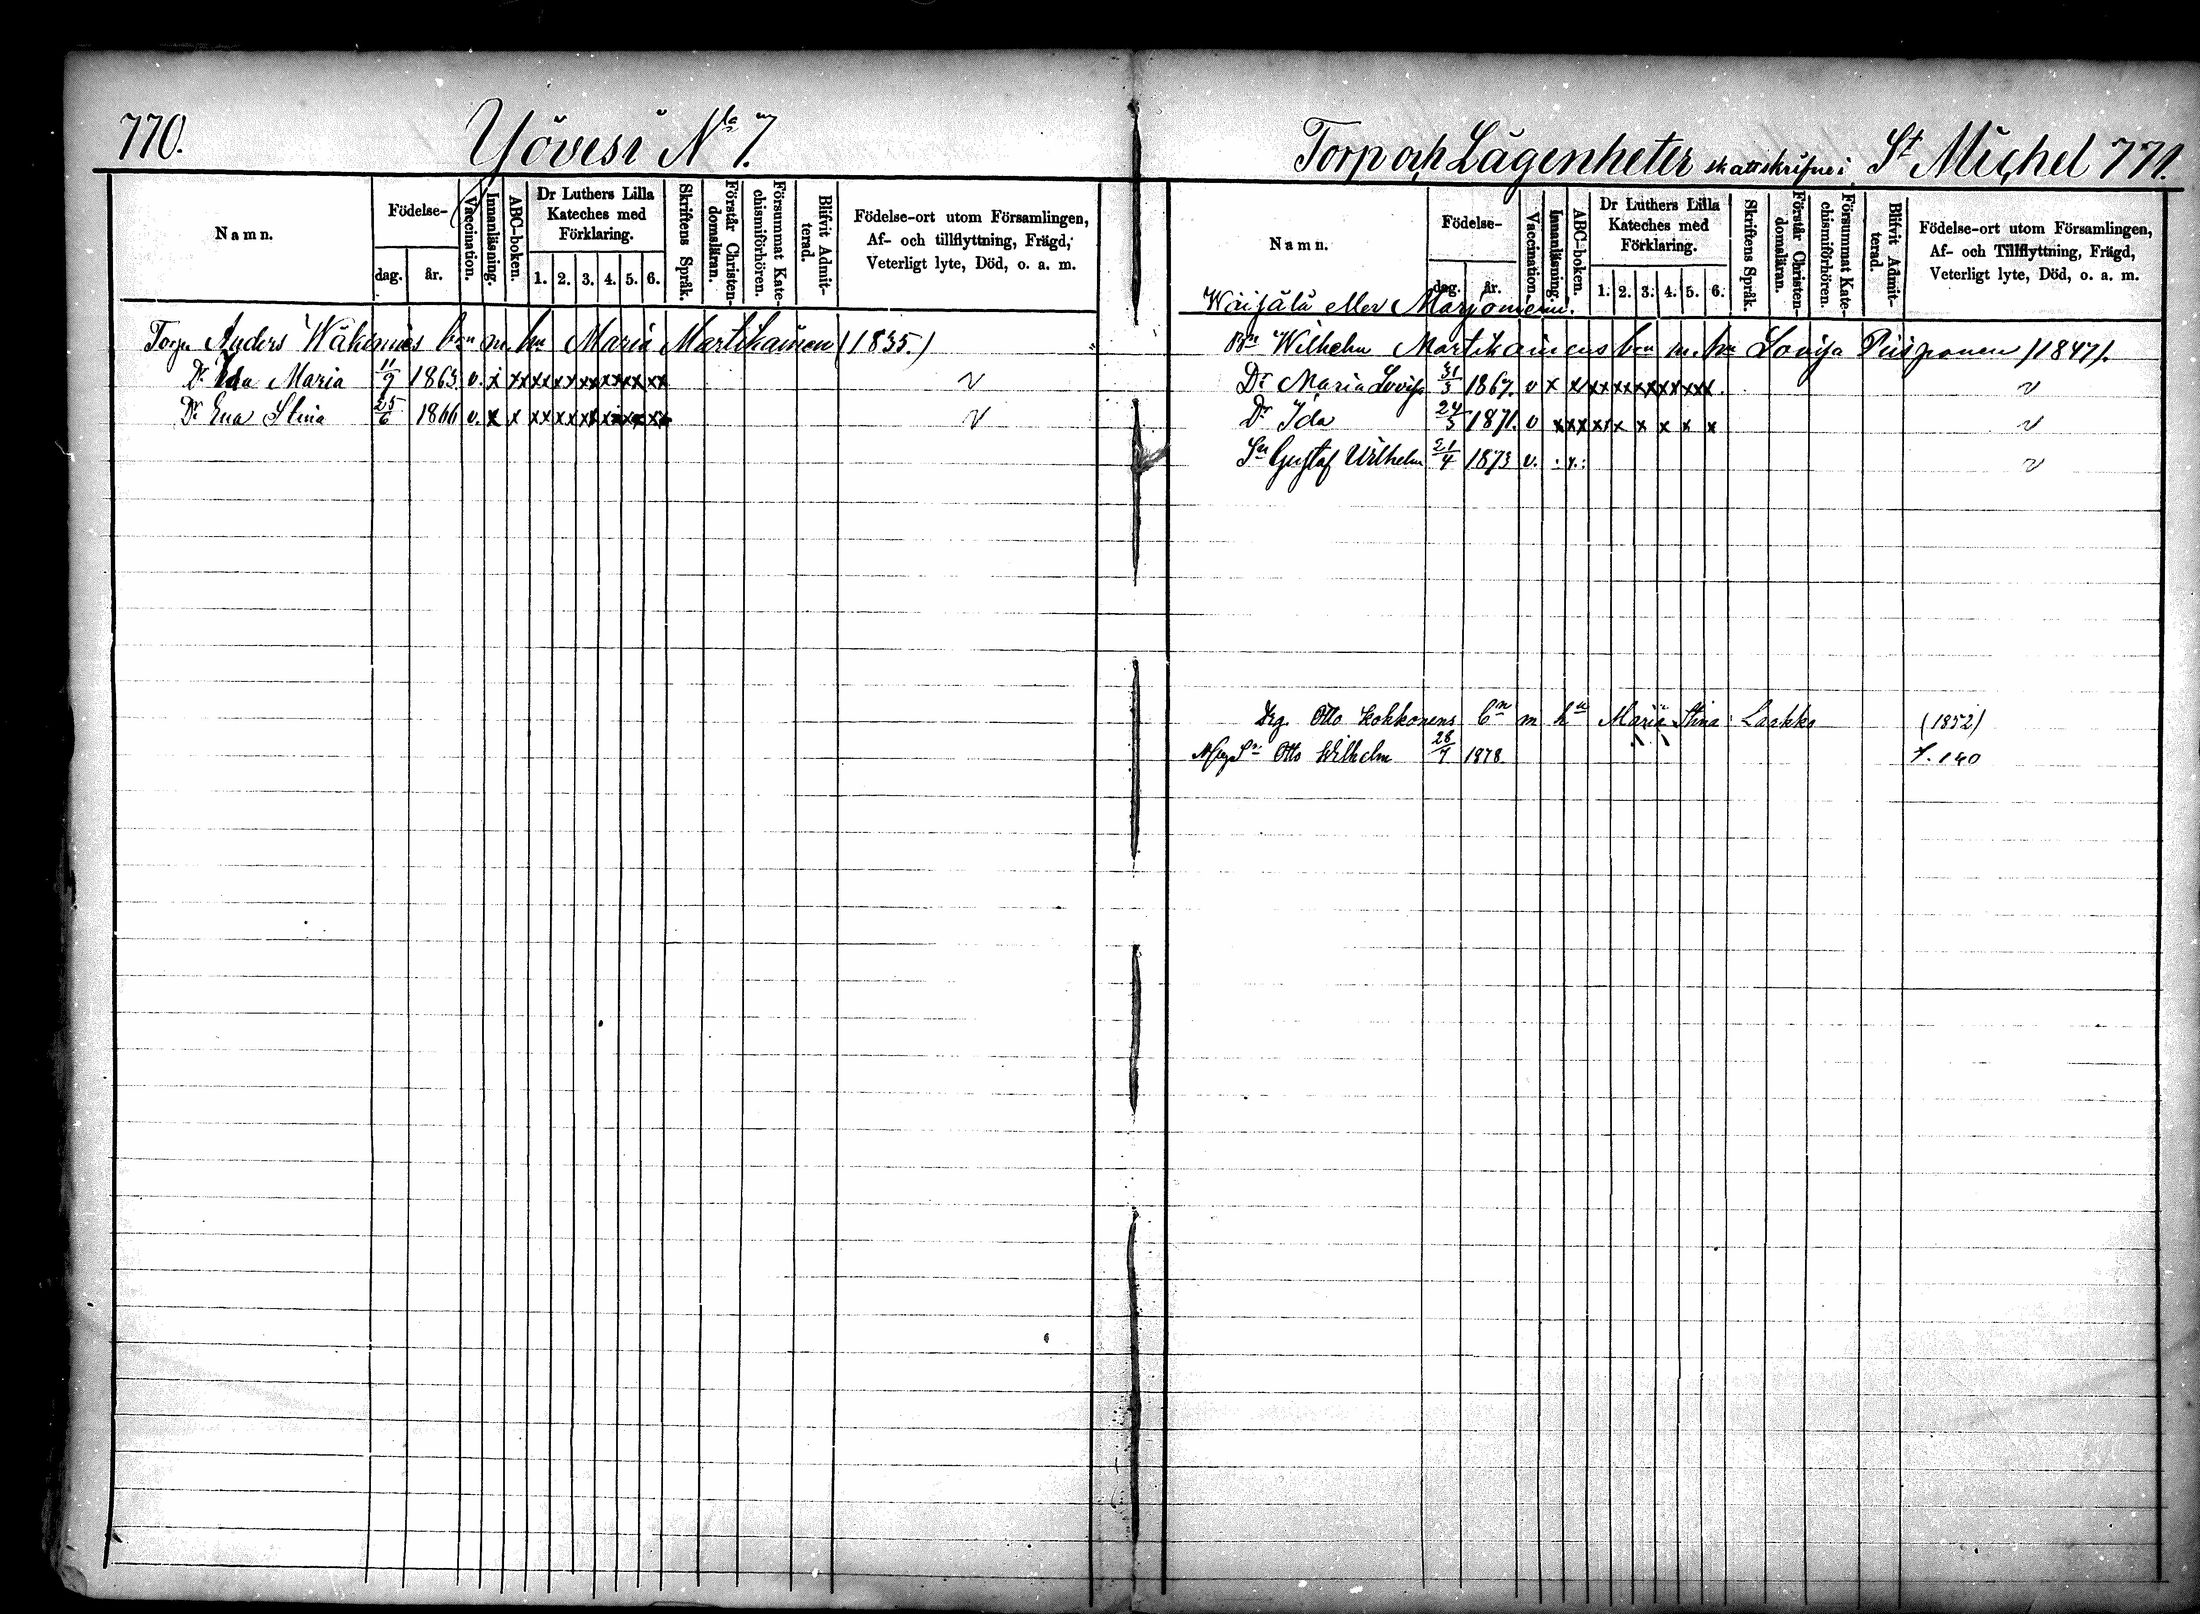 770.
Yövesi No 7.
Namn.
Födelse-
dag.
år.
Vaccination.
Innanläsning.
ABC-boken.
Dr Luthers Lilla Kateches med Förklaring.
1. 2. 3. 4. 5. 6.
Skriftens Språk.
Förstår Christendomsläran.
Försummat Katechismiförhören.
Blifvit Admitterad.
Födelse-ort utom Församlingen,
Af- och tillflyttning, Frägd,
Veterligt lyte, Död, o. a. m.
Torp. Anders bn m. hu Maria Martikainen (1835.)
Dr Ida Maria 11/9 1863 v. x x x x x x x x x
Dr Eva Stina 25/6 1866 v. x x x x x x x x x
Torp och Lägenheter skattskrifne i St Michel 771.
Namn.
Födelse-
dag.
år.
Vaccination.
Innanläsning.
ABC-boken.
Dr Luthers Lilla Kateches med Förklaring.
1. 2. 3. 4. 5. 6.
Skriftens Språk.
Förstår Christendomsläran.
Försummat Katechismiförhören.
Blifvit Admitterad.
Födelse-ort utom Församlingen,
Af- och Tillflyttning, Frägd,
Veterligt lyte, Död, o. a. m.
Wäijälä eller Marjoniemi.
Bn Wilhelm Martikainens bn m. hu Lovisa Piisponen (1847).
Dr Maria Lovisa 31/3 1867. v x x x x x x x x
Dr Ida 24/3 1871. v x x x x x x x x x
Sn Gustaf Wilhelm 21/4 1873 v.
Otto Kokkonens bn m hu Maria Stina Laakko (1852)
Sn Otto Wilhelm 28/7 1878 140